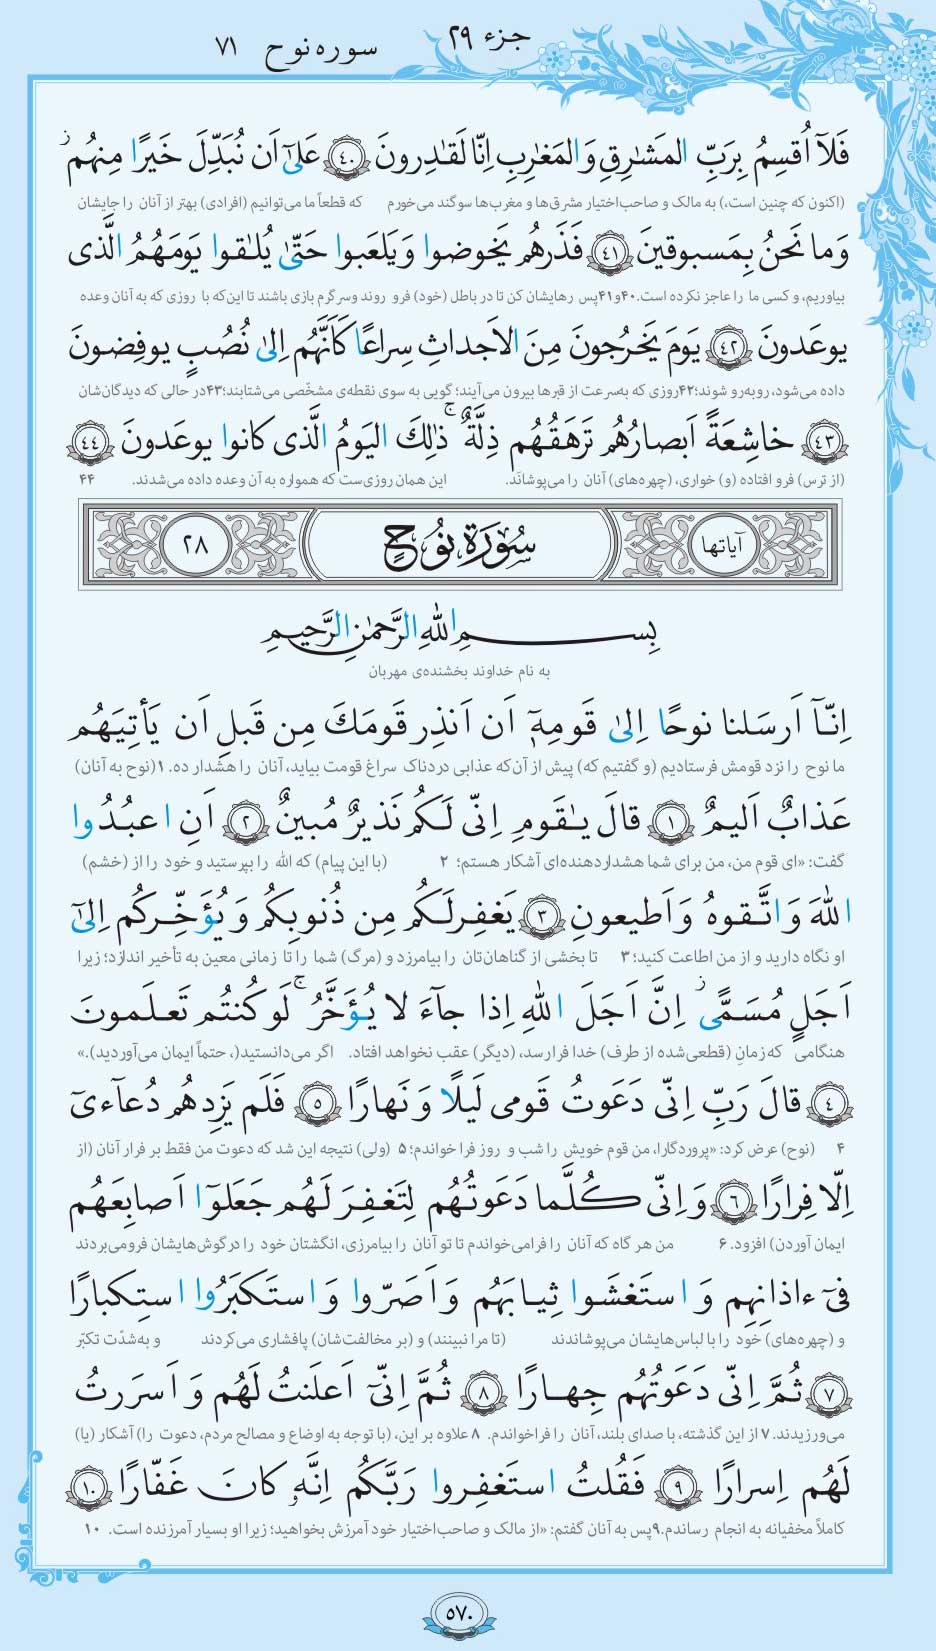 جزء ۲۹
سوره نوح ۷۱
فَلَآ اُقسِمُ بِرَبِّ المَشـٰرِقِ وَ المَغـٰرِبِ اِنّا لَقـٰدِرونَ ﴿٤٠﴾ عَلىٰٓ اَن نُبَدِّلَ خَيرًا مِنهُم ۙ
(اکنون که چنین است،) به مالک و صاحب‌اختیار مشرق‌ها و مغرب‌ها سوگند می‌خورم که قطعاً ما می‌توانیم (افرادی) بهتر از آنان را جایشان
وَ ما نَحنُ بِمَسبوقينَ ﴿٤١﴾ فَذَرهُم يَخوضوا وَ يَلعَبوا حَتّىٰ يُلـٰقوا يَومَهُمُ الَّذى
بیاوریم، و کسی ما را عاجز نکرده است.۴۰و۴۱پس رهایشان کن تا در باطل (خود) فرو روند وسرگرم بازی باشند تا این‌که با روزی که به آنان وعده
يوعَدونَ ﴿٤٢﴾ يَومَ يَخرُجونَ مِنَ الاَجداثِ سِراعًا كَاَنَّهُم اِلىٰ نُصُبٍ يوفِضونَ
داده می‌شود، روبه‌رو شوند؛۴۲روزی که به‌سرعت از قبرها بیرون می‌آیند؛ گویی به سوی نقطه‌ی مشخّصی می‌شتابند؛۴۳در حالی که دیدگان‌شان
﴿٤٣﴾ خاشِعَةً اَبصارُهُم تَرهَقُهُم ذِلَّةٌ ۚ ذٰلِكَ اليَومُ الَّذى كانوا يوعَدونَ ﴿٤٤﴾
(از ترس) فرو افتاده (و) خواری، (چهره‌های) آنان را می‌پوشانَد. این همان روزی‌ست که همواره به آن وعده داده می‌شدند. ۴۴
آیاتها سُورَةُ نُوحٍ ۲۸
بِسمِ اللّٰهِ الرَّحمٰنِ الرَّحيمِ
به نام خداوند بخشنده‌ی مهربان
اِنّآ اَرسَلنا نوحًا اِلىٰ قَومِهٖٓ اَن اَنذِر قَومَكَ مِن قَبلِ اَن يَأتِيَهُم
ما نوح را نزد قومش فرستادیم (و گفتیم که) پیش از آن‌که عذابی دردناک سراغ قومت بیاید، آنان را هشدار ده. ۱(نوح به آنان)
عَذابٌ اَليمٌ ﴿١﴾ قالَ يـٰقَومِ اِنّى لَكُم نَذيرٌ مُبينٌ ﴿٢﴾ اَنِ اعبُدُوا
گفت: «ای قوم من، من برای شما هشداردهنده‌ای آشکار هستم؛ ۲ (با این پیام) که الله را بپرستید و خود را از (خشم)
اللّٰهَ وَ اتَّقوهُ وَ اَطيعونِ ﴿٣﴾ يَغفِرلَكُم مِن ذُنوبِكُم وَ يُؤَخِّركُم اِلىٰٓ
او نگاه دارید و از من اطاعت کنید؛ ۳ تا بخشی از گناهان‌تان را بیامرزد و (مرگ) شما را تا زمانی معین به تأخیر اندازد؛ زیرا
اَجَلٍ مُسَمًّى ۚ اِنَّ اَجَلَ اللّٰهِ اِذا جآءَ لا يُؤَخَّرُ ۚ لَو كُنتُم تَعلَمونَ
هنگامی که زمانِ (قطعی‌شده از طرف) خدا فرا رسد، (دیگر) عقب نخواهد افتاد. اگر می‌دانستید(، حتماً ایمان می‌آوردید).»
﴿٤﴾ قالَ رَبِّ اِنّى دَعَوتُ قَومى لَيلًا وَ نَهارًا ﴿٥﴾ فَلَم يَزِدهُم دُعآءىٓ
۴ (نوح) عرض کرد: «پروردگارا، من قوم خویش را شب و روز فرا خواندم؛ ۵ (ولی) نتیجه این شد که دعوت من فقط بر فرار آنان (از
اِلّا فِرارًا ﴿٦﴾ وَ اِنّى كُلَّما دَعَوتُهُم لِتَغفِرَ لَهُم جَعَلوٓا اَصابِعَهُم
ایمان آوردن) افزود. ۶ من هر گاه که آنان را فرامی‌خواندم تا تو آنان را بیامرزی، انگشتان خود را درگوش‌هایشان فرومی‌بردند
فىٓ ءاذانِهِم وَ استَغشَوا ثِيابَهُم وَ اَصَرّوا وَ استَكبَرُوا استِكبارًا
و (چهره‌های) خود را با لباس‌هایشان می‌پوشاندند (تا مرا نبینند) و (بر مخالفت‌شان) پافشاری می‌کردند و به‌شدّت تکبّر
﴿٧﴾ ثُمَّ اِنّى دَعَوتُهُم جِهارًا ﴿٨﴾ ثُمَّ اِنّىٓ اَعلَنتُ لَهُم وَ اَسرَرتُ
می‌ورزیدند. ۷ از این گذشته، با صدای بلند، آنان را فراخواندم. ۸ علاوه بر این، (با توجه به اوضاع و مصالح مردم، دعوت را) آشکار (یا)
لَهُم اِسرارًا ﴿٩﴾ فَقُلتُ استَغفِروا رَبَّكُم اِنَّهٗ كانَ غَفّارًا ﴿١٠﴾
کاملاً مخفیانه به انجام رساندم.۹پس به آنان گفتم: «از مالک و صاحب‌اختیار خود آمرزش بخواهید؛ زیرا او بسیار آمرزنده است. ۱۰
۵۷۰